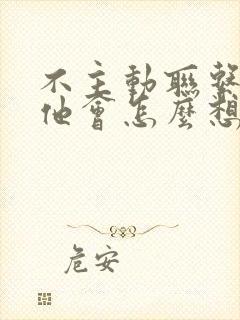 不主動聯繫
他會怎麼想
危安